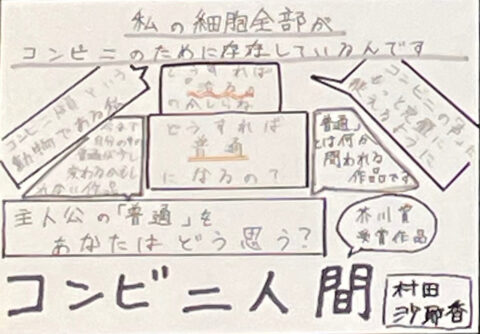 私の細胞全部が
コンビニのために存在しているんです
コンビニ店員という
動物である私
どうすれば
"治る"
のかしらね
コンビニの「声」に
もっと完璧に
使えるように
今まで
自分の中の
普通が少し
変わるかもし
れない作品
どうすれば
普通
になるの？
「普通」
とは何か
問われる
作品です
主人公の「普通」を
あなたはどう思う？
芥川賞
受賞作品
コンビニ人間
村田
沙耶香